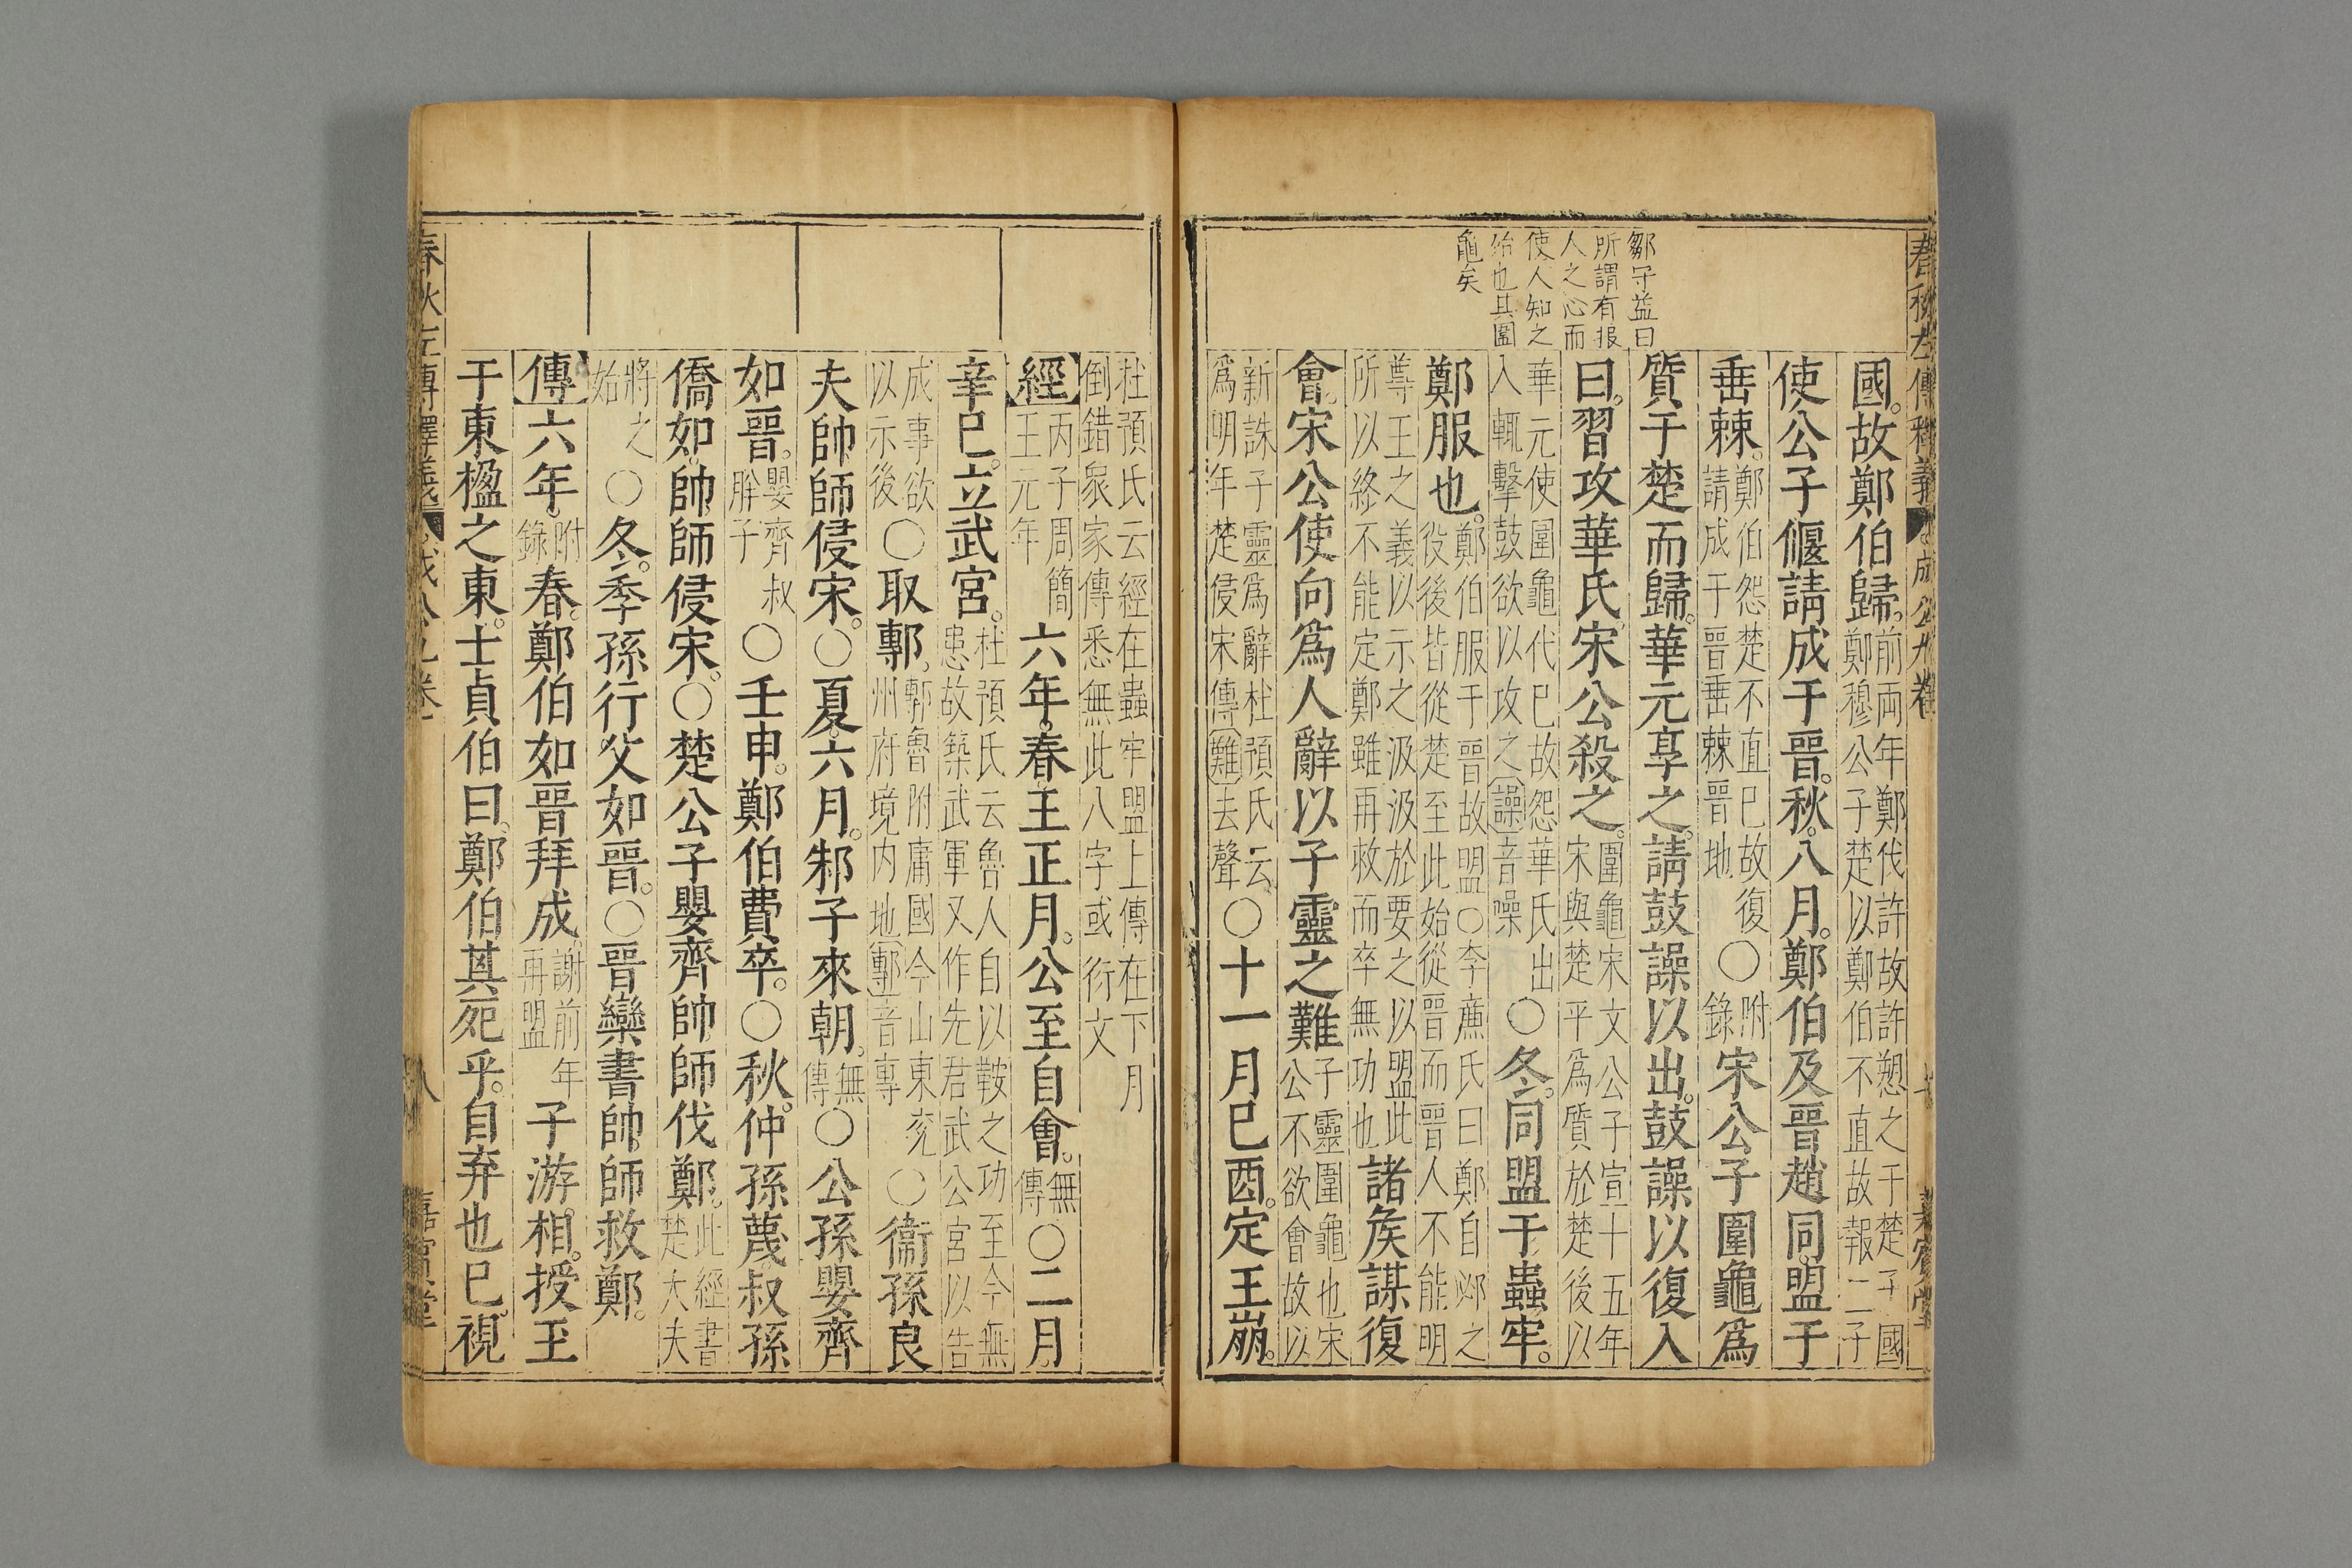 鄒守益曰
所謂有报
人之心而
使人知之
殆也其圍
龜矣
國。故鄭伯歸。前两年鄭伐許故許愬之于楚子國鄭穆公子楚以鄭伯不直故報二子
使公子偃請成于晉。秋。八月。鄭伯及晉趙同。盟于
垂棘。鄭伯怨楚不直巳故復請成于晉垂棘晉地○附錄宋公子圍龜爲
質于楚而歸。華元享之。請鼓譟以出。鼓譟以復入
曰。習攻華氏宋公殺之。圍龜宋文公子宣十五年宋與楚平爲質於楚後以
華元使圍龜代巳故怨華氏出入輒擊鼓欲以攻之譟音噪○冬。同盟于蟲牢。
鄭服也。鄭伯服于晉故盟○李廉氏曰鄭自邲之役後皆從楚至此始從晉而晉人不能明
尊王之義以示之汲汲於要之以盟此所以終不能定鄭雖再救而卒無功也諸矦謀復
會。宋公使向爲人辭以子靈之難子靈圍龜也宋公不欲會故以
新誅子靈爲辭杜預氏云爲明年楚侵宋傳難去聲○十一月巳酉。定王崩。
杜預氏云經在蟲牢盟上傳在下月倒錯衆家傳悉無此八字或衍文
經丙子周簡王元年六年。春。王正月。公至自會。無傳○二月
辛巳。立武宮。杜預氏云魯人自以鞍之功至今無患故築武軍又作先君武公宮以告
成事欲以示後○取鄟。鄟魯附庸國今山東兖州府境内地鄟音專○衞孫良
夫帥師侵宋。○夏。六月。邾子來朝。無傳○公孫嬰齊
如晉。嬰齊叔肸子○壬申。鄭伯費卒。○秋。仲孫蔑叔孫
僑如。帥師侵宋。○楚公子嬰齊帥師伐鄭。此經書楚大夫
將之始○冬。季孫行父如晉。○晉欒書帥師救鄭。
傳六年。附錄春。鄭伯如晉拜成謝前年再盟子游。相。授玉
于東楹之東。士貞伯曰。鄭伯其死乎。自弃也已。視